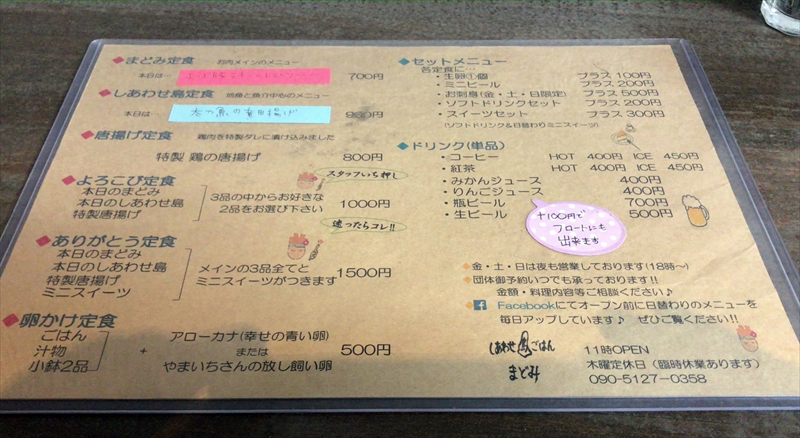 まどみ定食 お肉メインのメニュー
本日は… 700円
しあわせ島定食 地魚と魚介中心のメニュー
太刀魚の竜田揚げ
唐揚げ定食 鶏肉を特製ダレに漬け込みました
特製 鶏の唐揚げ 800円
よろこび定食 スタッフいち押し
本日のまどみ
本日のしあわせ島
特製唐揚げ
3品の中からお好きな
2品をお選び下さい 1000円
迷ったらコレ!!
ありがとう定食
本日のまどみ
本日のしあわせ島
特製唐揚げ
ミニスイーツ
メインの3品全てと
ミニスイーツがつきます 1500円
卵かけ定食
ごはん
汁物
小鉢2品
+
アローカナ(幸せの青い卵)
または
やまいちさんの放し飼い卵
500円
セットメニュー
各定食に…
・生卵①個 プラス 100円
・ミニビール プラス 200円
・お刺身(金・土・日限定) プラス 500円
・ソフトドリンクセット プラス 200円
・スイーツセット プラス 300円
(ソフトドリンク&日替わりミニスイーツ)
ドリンク(単品)
・コーヒー HOT 400円 ICE 450円
・紅茶 HOT 400円 ICE 450円
・みかんジュース 400円
・りんごジュース 400円
・瓶ビール 700円
・生ビール 500円
+100円で
フロートにも
出来ます
金・土・日は夜も営業しております(18時〜)
団体御予約いつでも承っております!!
金額・料理内容等ご相談ください♪
Facebookにてオープン前に日替わりのメニューを
毎日アップしています♪ ぜひご覧ください!!
しあわせ島ごはん
まどみ
11時OPEN
木曜定休日(臨時休業あります)
090-5127-0358